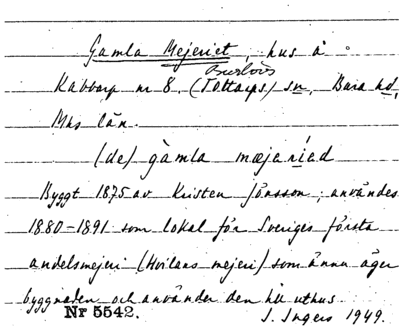 Gamla Mejeriet, hus å
Burlövs
Kabbarp nr 8. (Tottarps) sn, Bara hd,
Mhs län.
(de) gàmla mæjeríəd
Byggt 1875 av Kristen Jönsson; användes
1880-1891 som lokal för Sveriges första
andelsmejeri (Hvilans mejeri) som ännu äger
byggnaden och använder den till uthus.
Nr 5542. I. Ingers 1949.